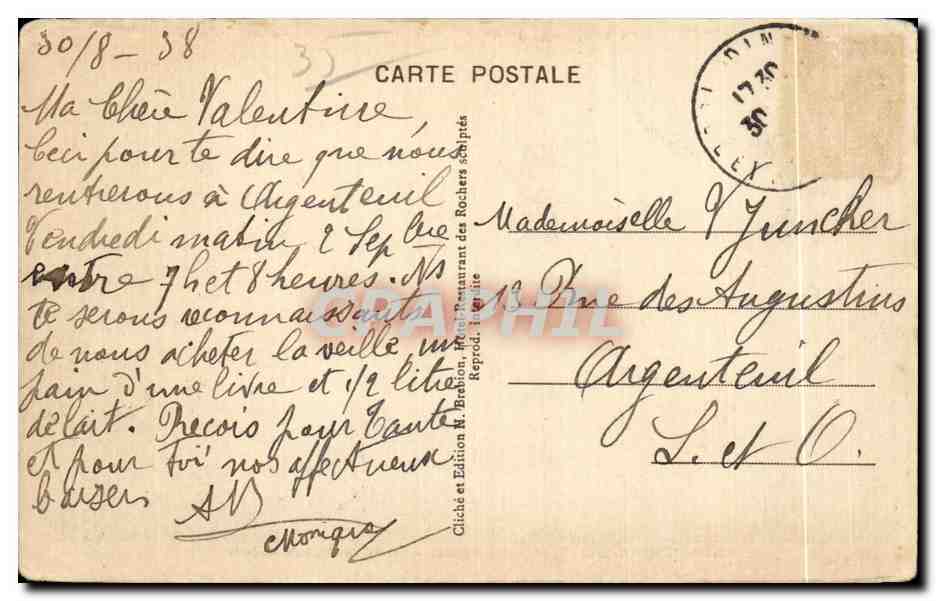 30/8 - 38
CARTE POSTALE
Ma Chère Valentine,
Ceci pour te dire que nous
rentrerons à Argenteuil
Vendredi matin 2 Sepbre
entre 7h et 8 heures. Ns
te serons reconnaissants
de nous acheter la veille un
pain d'une livre et 1/2 litre
de lait. Reçois pour Tante
et pour toi nos affectueux
baisers
AB
Monique
Cliché et Edition N. Brebion, Hôtel-Restaurant des Rochers sculptés
Reprod. interdite
17 30
30
Mademoiselle V Juncher
13 Rue des Augustins
Argenteuil
S. et O.
CPAPHIL